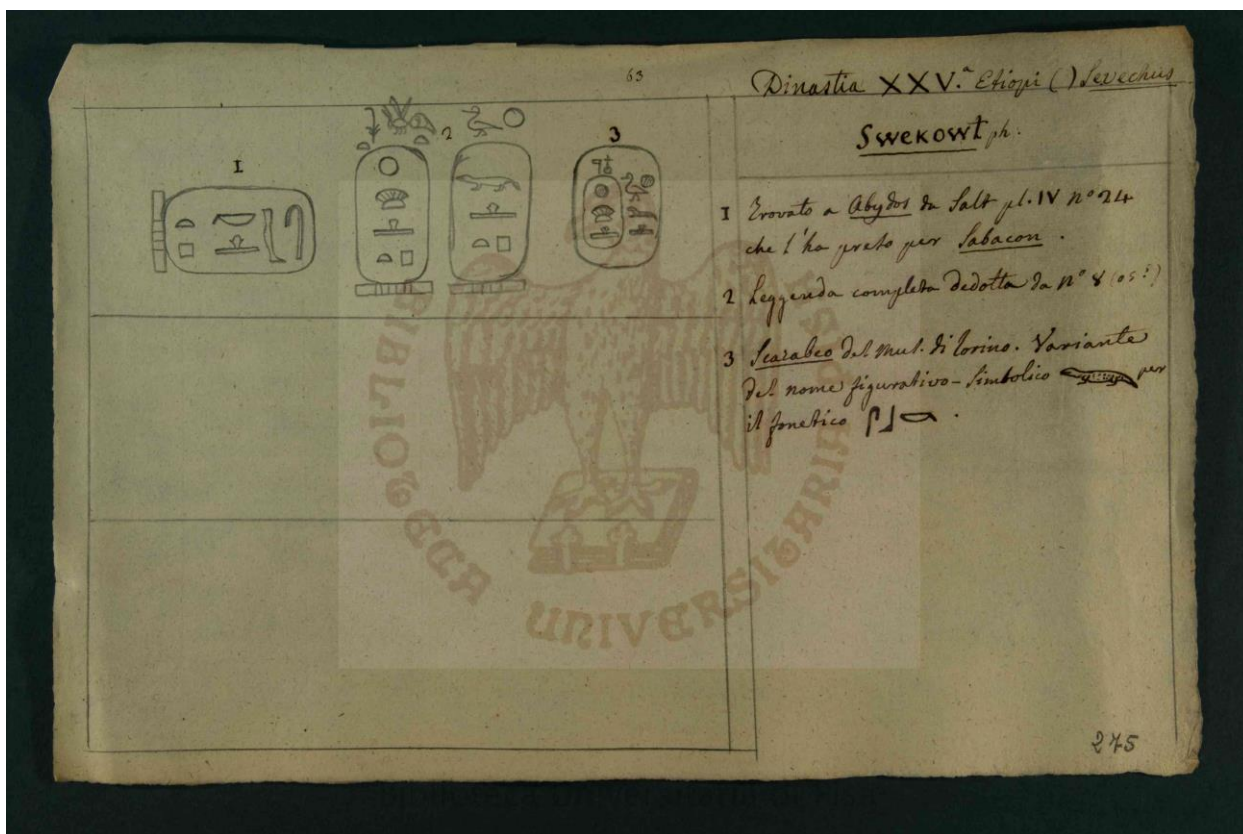 63
Dinastia XXV.ª Etiopi ( ) Sevechus
Swekowt ph.
1 2 3
1 Trovato a Abydos da Salt pl. IV nº 24
che l'ha preto per Sabacon.
2 Leggenda completa dedotta da nº 8
3 Scarabeo del mus. di Torino. Variante
del nome figurativo-simbolico per
il fonetico
BIBLIOTECA UNIVERSITARIA
275